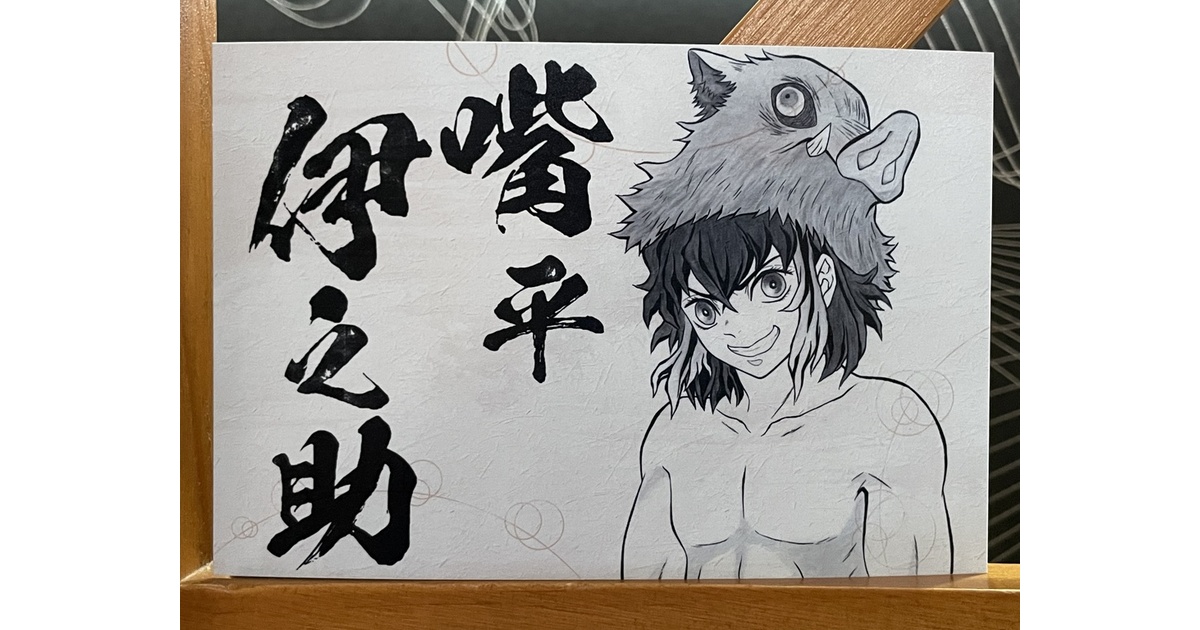 嘴平
伊之助